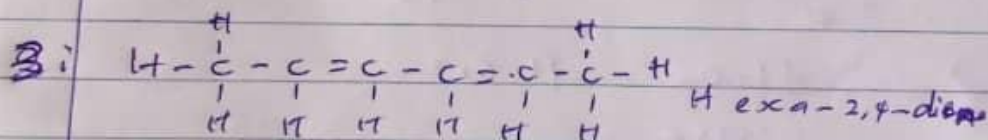 H H
3i H - C - C = C - C = C - C - H
H H H H H H
Hexa-2,4-diene